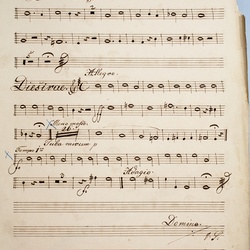 Allegro.
Dies irae.
Meno mosso
Tuba mirum p
Tempo 1mo
Adagio.
Domine.